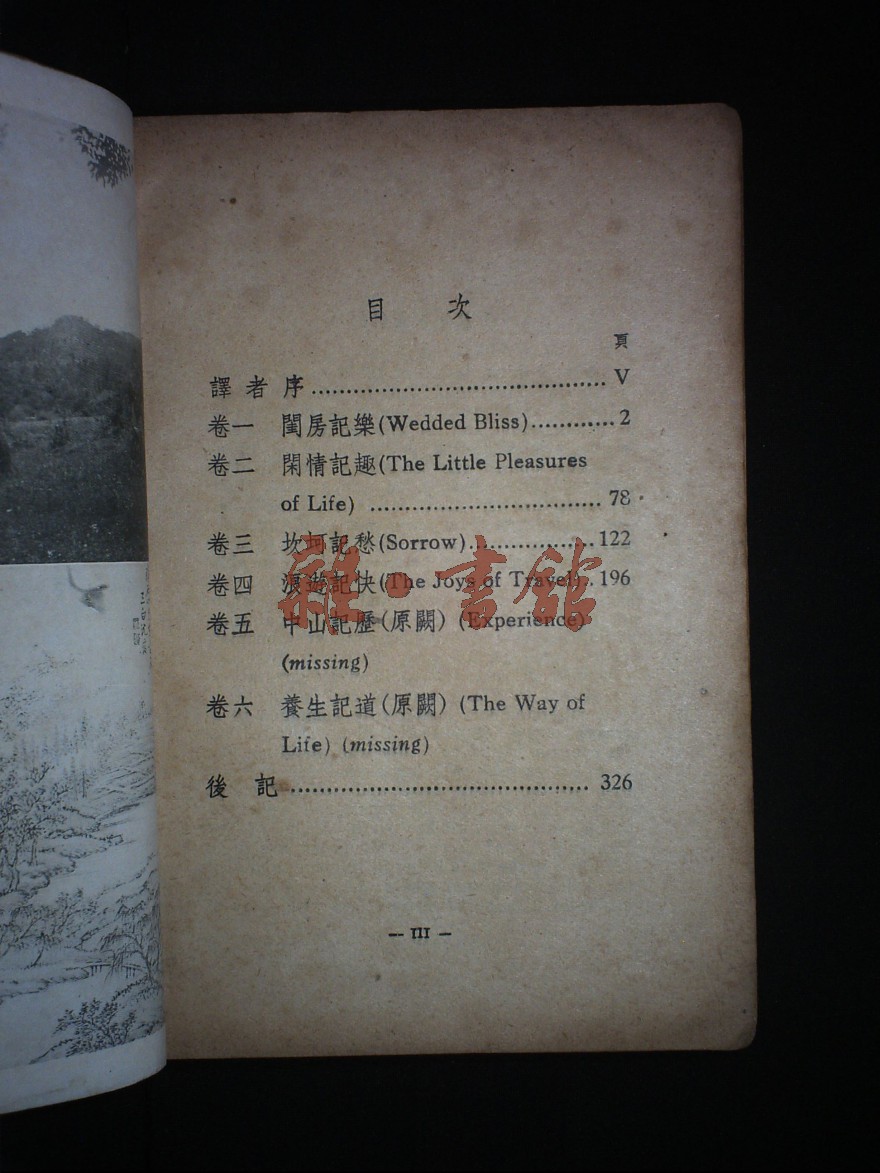 目 次
頁
譯者序 ........................................ V
卷一 閨房記樂(Wedded Bliss)............2
卷二 閑情記趣(The Little Pleasures
of Life) ................................ 78
卷三 坎坷記愁(Sorrow)..................122
卷四 浪遊記快(The Joys of Travel)..196
卷五 中山記歷(原闕) (Experience)
(missing)
卷六 養生記道(原闕) (The Way of
Life) (missing)
後記 ........................................ 326
— III —
雜·書館